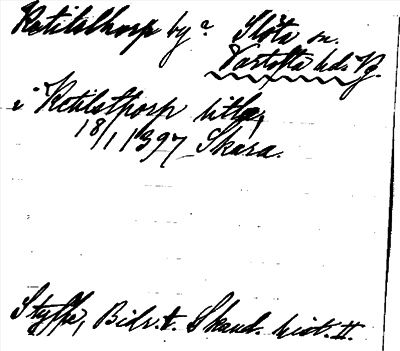 Ketilsthorp by? Slöta sn.
Vartofta hds Vg.
i Ketilsthorp litla,
18/1 1397 Skara.
Styffe, Bidr. t. Skand. hist. II.